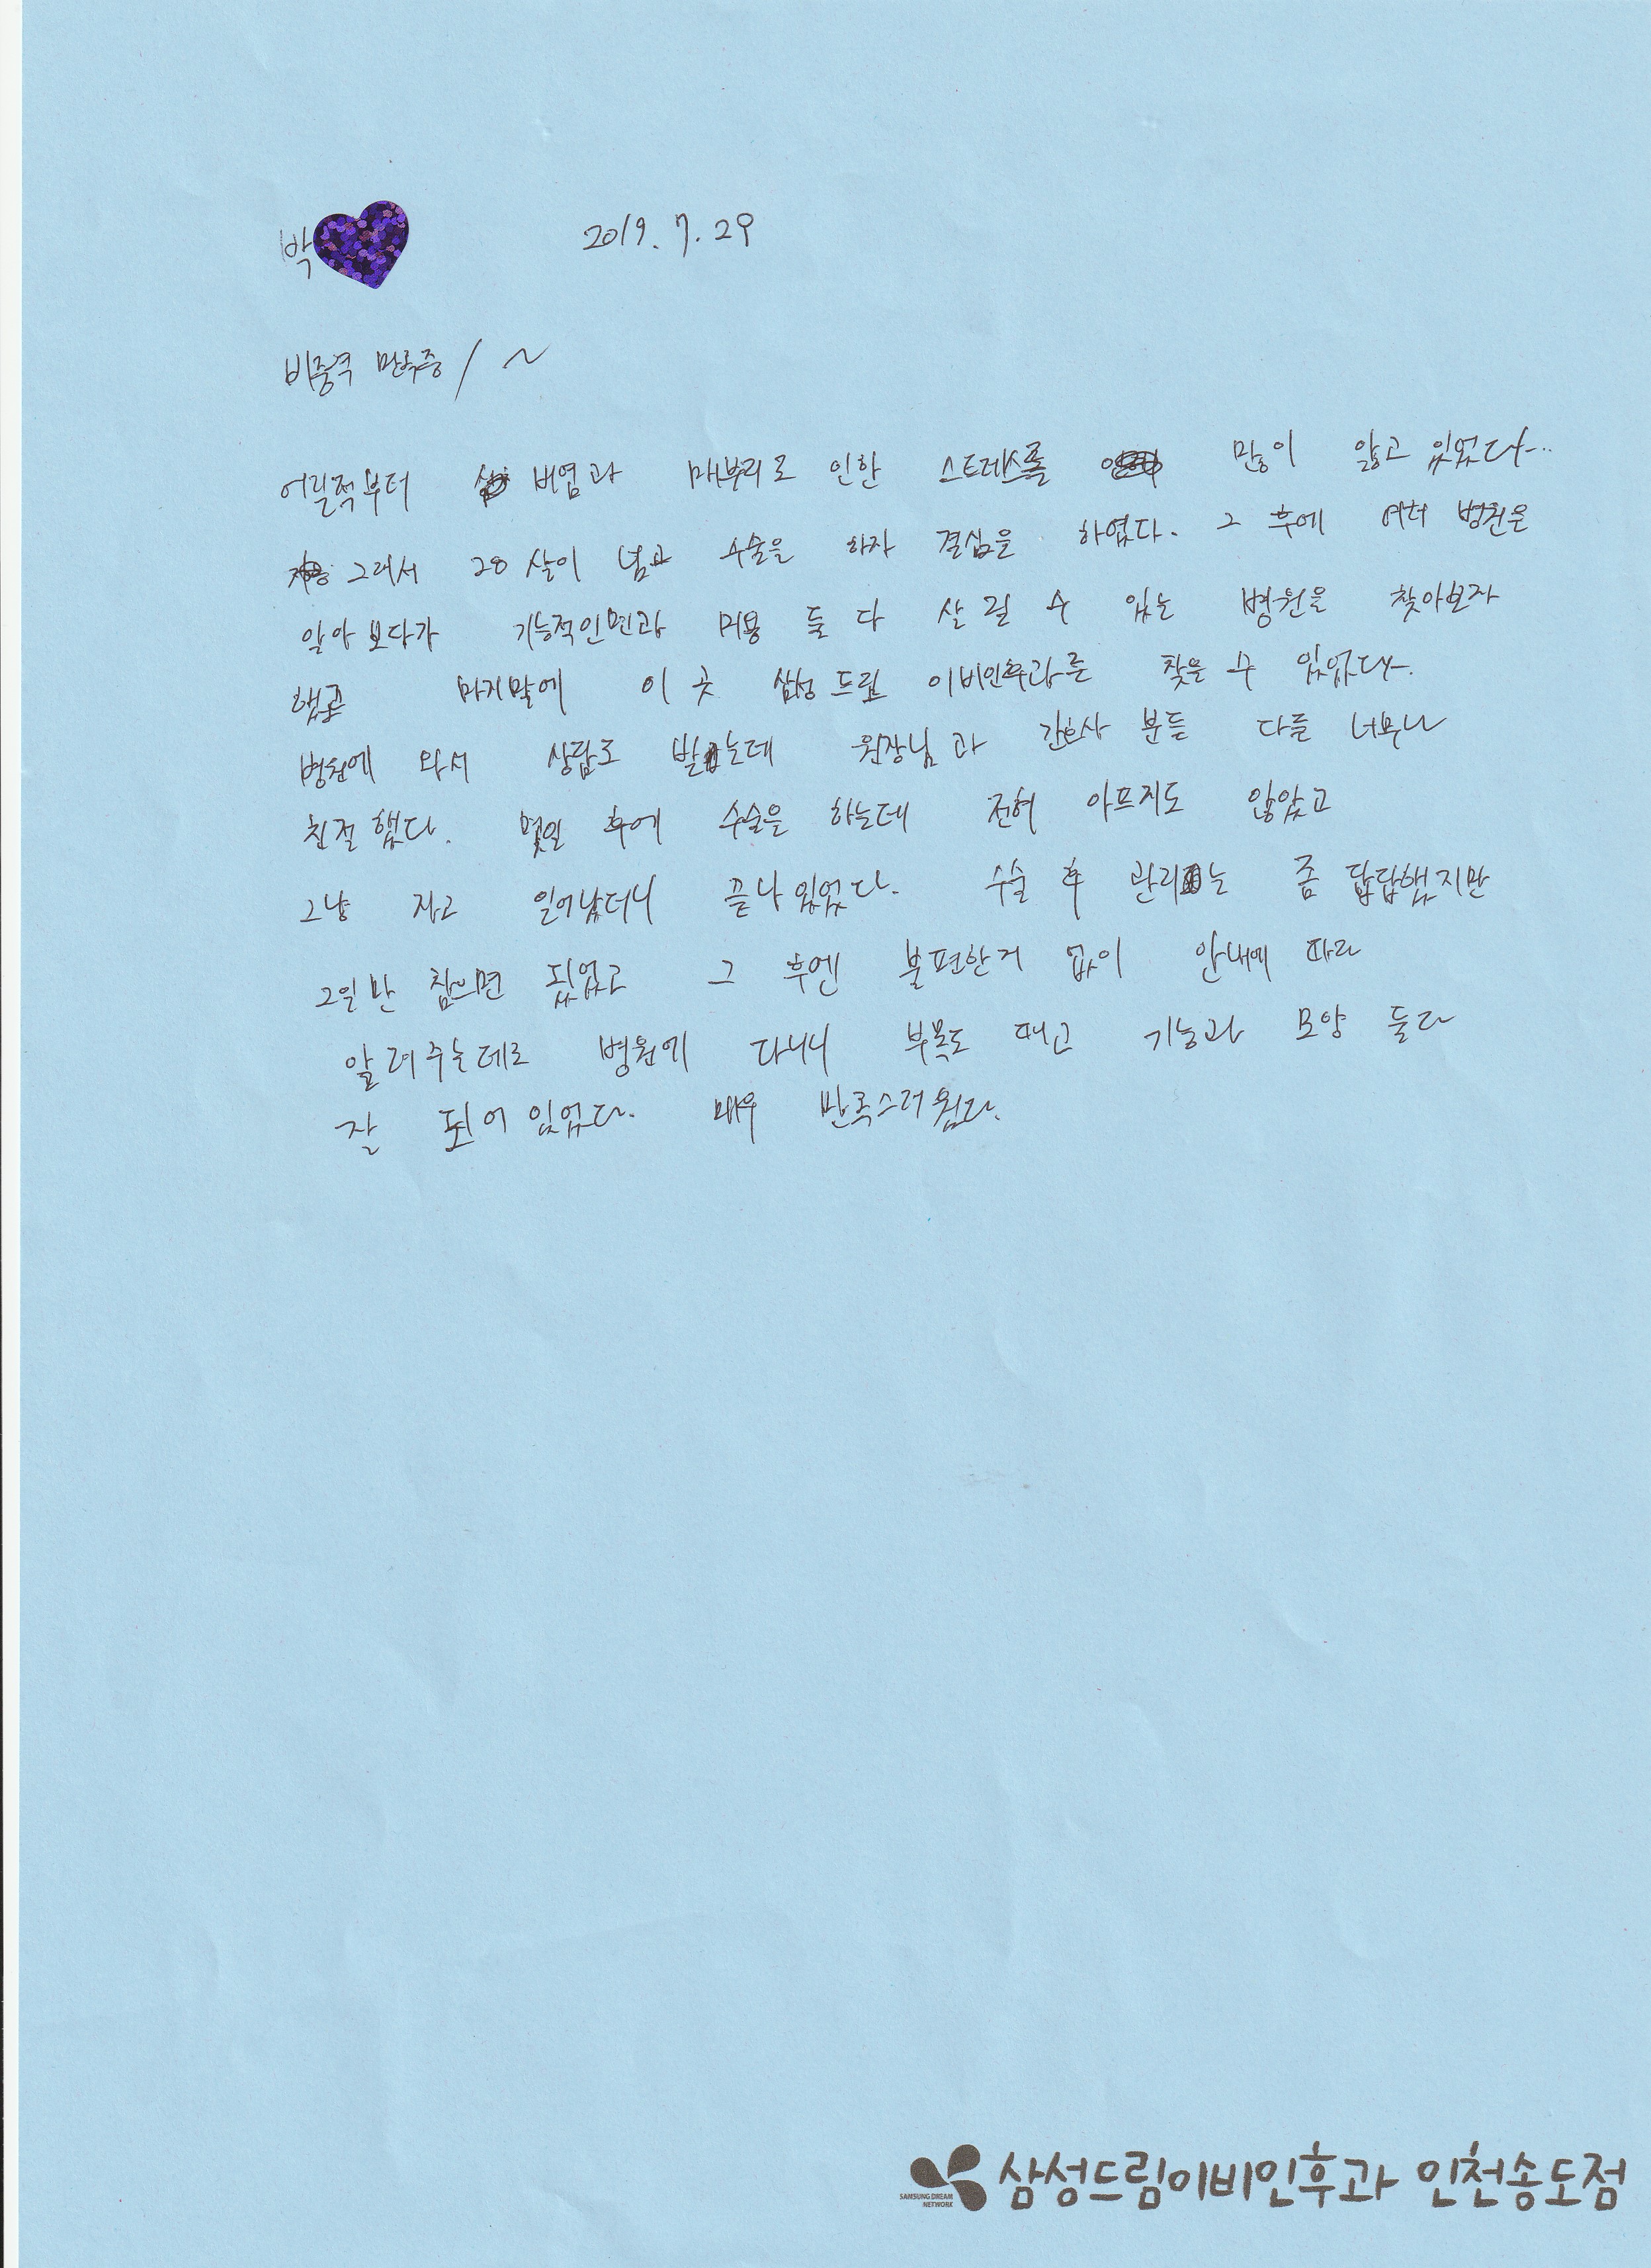 박 2019. 7. 29
비중격 만곡증 / ~
어릴적부터 비염과 매부리로 인한 스트레스를 많이 앓고 있었다...
그래서 28살이 넘고 수술을 하자 결심을 하였다. 그 후에 여러 병원을
알아보다가 기능적인면과 미용 둘 다 살릴 수 있는 병원을 찾아보자
했고 마지막에 이 곳 삼성드림 이비인후과를 찾을 수 있었다.
병원에 와서 상담도 받는데 원장님과 간호사 분들 다들 너무나
친절했다. 몇일 후에 수술을 하는데 전혀 아프지도 않았고
그냥 자고 일어났더니 끝나있었다. 수술 후 관리는 좀 답답했지만
2일만 참으면 됬었고 그 후엔 불편한거 없이 안내에 따라
알려주는데로 병원에 다니니 부목도 떼고 기능과 모양 둘다
잘 되어있었다. 매우 만족스러웠다.
SAMSUNG DREAM
NETWORK
삼성드림이비인후과 인천송도점